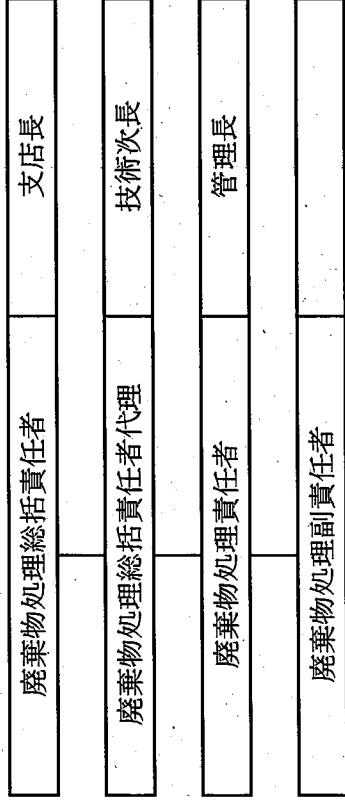 廃棄物処理総括責任者 支店長
廃棄物処理総括責任者代理 技術次長
廃棄物処理責任者 管理長
廃棄物処理副責任者